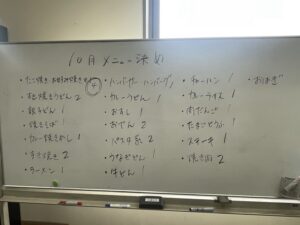 10月メニュー決め
・たこ焼き お好み焼き ④
・ハンバーガー ハンバーグ 1
・チャーハン 1
・おはぎ
うどん 2
・カレーうどん 1
・カレーライス 1
・餃子どん 1
・おすし 1
・肉だんご 1
・焼きそば 1
・おでん 2
・たまごどうふ 1
・カレー 1
・パスタ 2
・ステーキ 1
・すき焼き 2
・うなぎどん 1
・焼き肉 2
・ラーメン 1
・牛どん 1